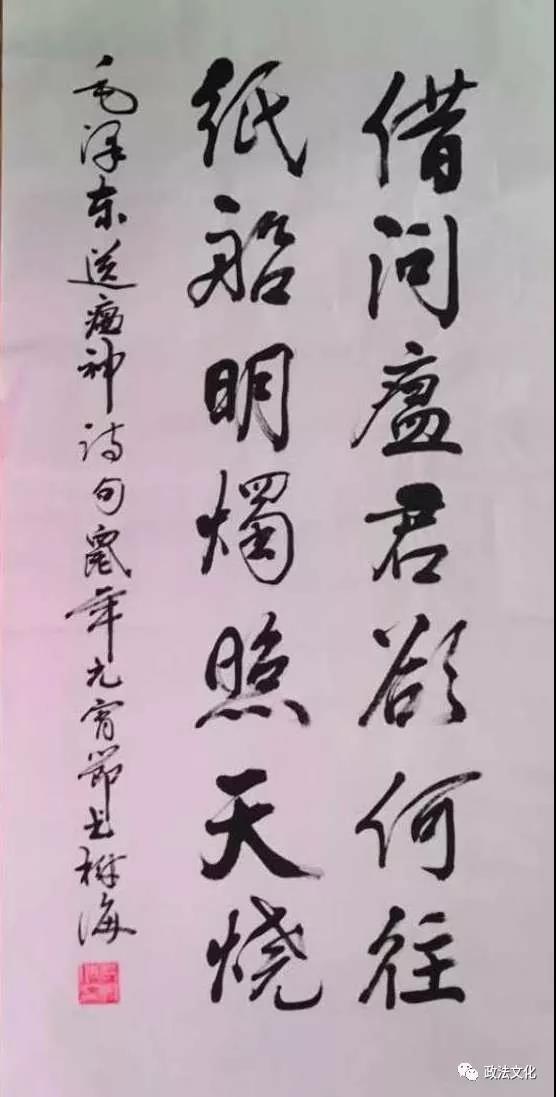 借问瘟君欲何往
纸船明烛照天烧
毛泽东送瘟神诗句鼠年元宵节书树海
政法文化